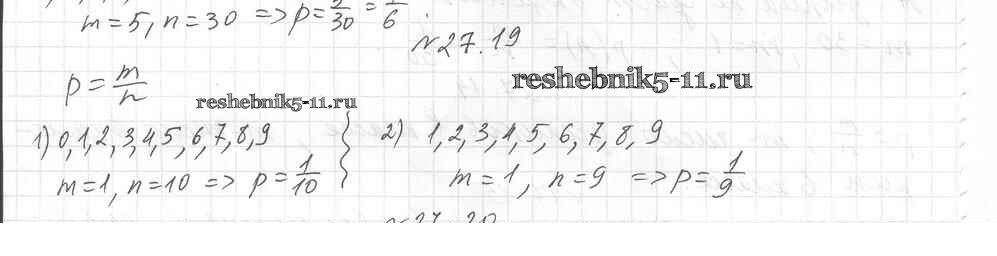 m=5, n=30 => p=5/30=1/6.
№27.19
p=m/n
reshebnik5-11.ru
reshebnik5-11.ru
1) 0,1,2,3,4,5,6,7,8,9
m=1, n=10 => p=1/10
2) 1,2,3,4,5,6,7,8,9
m=1, n=9 => p=1/9